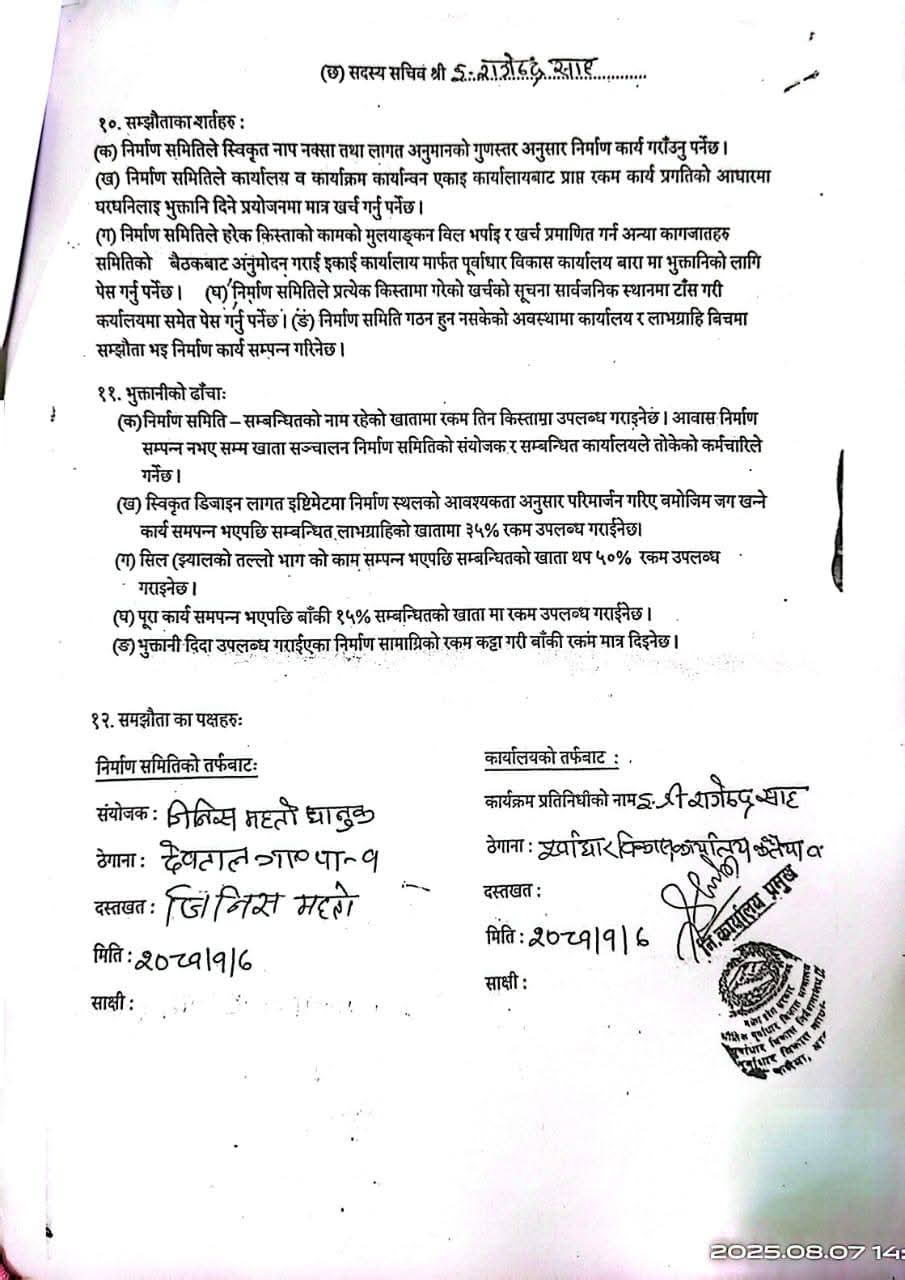 (छ) सदस्य सचिव श्री इ. राजेन्द्र साह
१०. सम्झौताका शर्तहरु :
(क) निर्माण समितिले स्विकृत नाप नक्सा तथा लागत अनुमानको गुणस्तर अनुसार निर्माण कार्य गराँउनु पर्नेछ ।
(ख) निर्माण समितिले कार्यालय व कार्याक्रम कार्यान्वन एकाइ कार्यालायबाट प्राप्त रकम कार्य प्रगतिको आधारमा
घरधनिलाइ भुक्तानि दिने प्रयोजनमा मात्र खर्च गर्नु पर्नेछ ।
(ग) निर्माण समितिले हरेक क़िस्ताको कामको मुलयाङ्कन विल भर्पाइ र खर्च प्रमाणित गर्न अन्या कागजातहरु
समितिको बैठकबाट अनुमोदन गराई इकाई कार्यालाय मार्फत पूर्वाधार विकास कार्यालय बारा मा भुक्तानिको लागि
पेस गर्नु पर्नेछ । (घ) निर्माण समितिले प्रत्येक किस्तामा गरेको खर्चको सूचना सार्वजनिक स्थानमा टाँस गरी
कर्यालयमा समेत पेस गर्नु पर्नेछ । (ङ) निर्माण समिति गठन हुन नसकेको अवस्थामा कार्यालय र लाभग्राहि बिचमा
सम्झौता भइ निर्माण कार्य सम्पन्न गरिनेछ ।
११. भुक्तानीको ढाँचाः
(क) निर्माण समिति – सम्बन्धितको नाम रहेको खातामा रकम तिन किस्तामा उपलब्ध गराइनेछ । आवास निर्माण
सम्पन्न नभए सम्म खाता सञ्चालन निर्माण समितिको संयोजक र सम्बन्धित कार्यालयले तोकेको कर्मचारिले
गर्नेछ ।
(ख) स्विकृत डिजाइन लागत इष्टिमेटमा निर्माण स्थलको आवश्यकता अनुसार परिमार्जन गरिए बमोजिम जग खन्ने
कार्य समपन्न भएपछि सम्बन्धित लाभग्राहिको खातामा ३५% रकम उपलब्ध गराईनेछ।
(ग) सिल (झ्यालको तल्लो भाग को काम सम्पन्न भएपछि सम्बन्धितको खाता थप ५०% रकम उपलब्ध
गराइनेछ ।
(घ) पूरा कार्य समपन्न भएपछि बाँकी १५% सम्बन्धितको खाता मा रकम उपलब्ध गराईनेछ ।
(ङ) भुक्तानी दिदा उपलब्ध गराईएका निर्माण सामाग्रिको रकम कट्टा गरी बाँकी रकम मात्र दिइनेछ ।
१२. समझौता का पक्षहरुः
निर्माण समितिको तर्फबाटः
कार्यालयको तर्फबाट :
संयोजक : जिनिस महतो धानुक
कार्यक्रम प्रतिनिधीको नाम इ. श्री राजेन्द्र साह
ठेगाना : देवताल गा०पा-१
ठेगाना : पूर्वाधार विकास कार्यालय कलैया
दस्तखत : जिनिस महतो
दस्तखत :
नि. कार्यालय प्रमुख
मिति : २०८१/१/६
मिति : २०८१/१/६
साक्षी :
साक्षी :
2025.08.07 14: